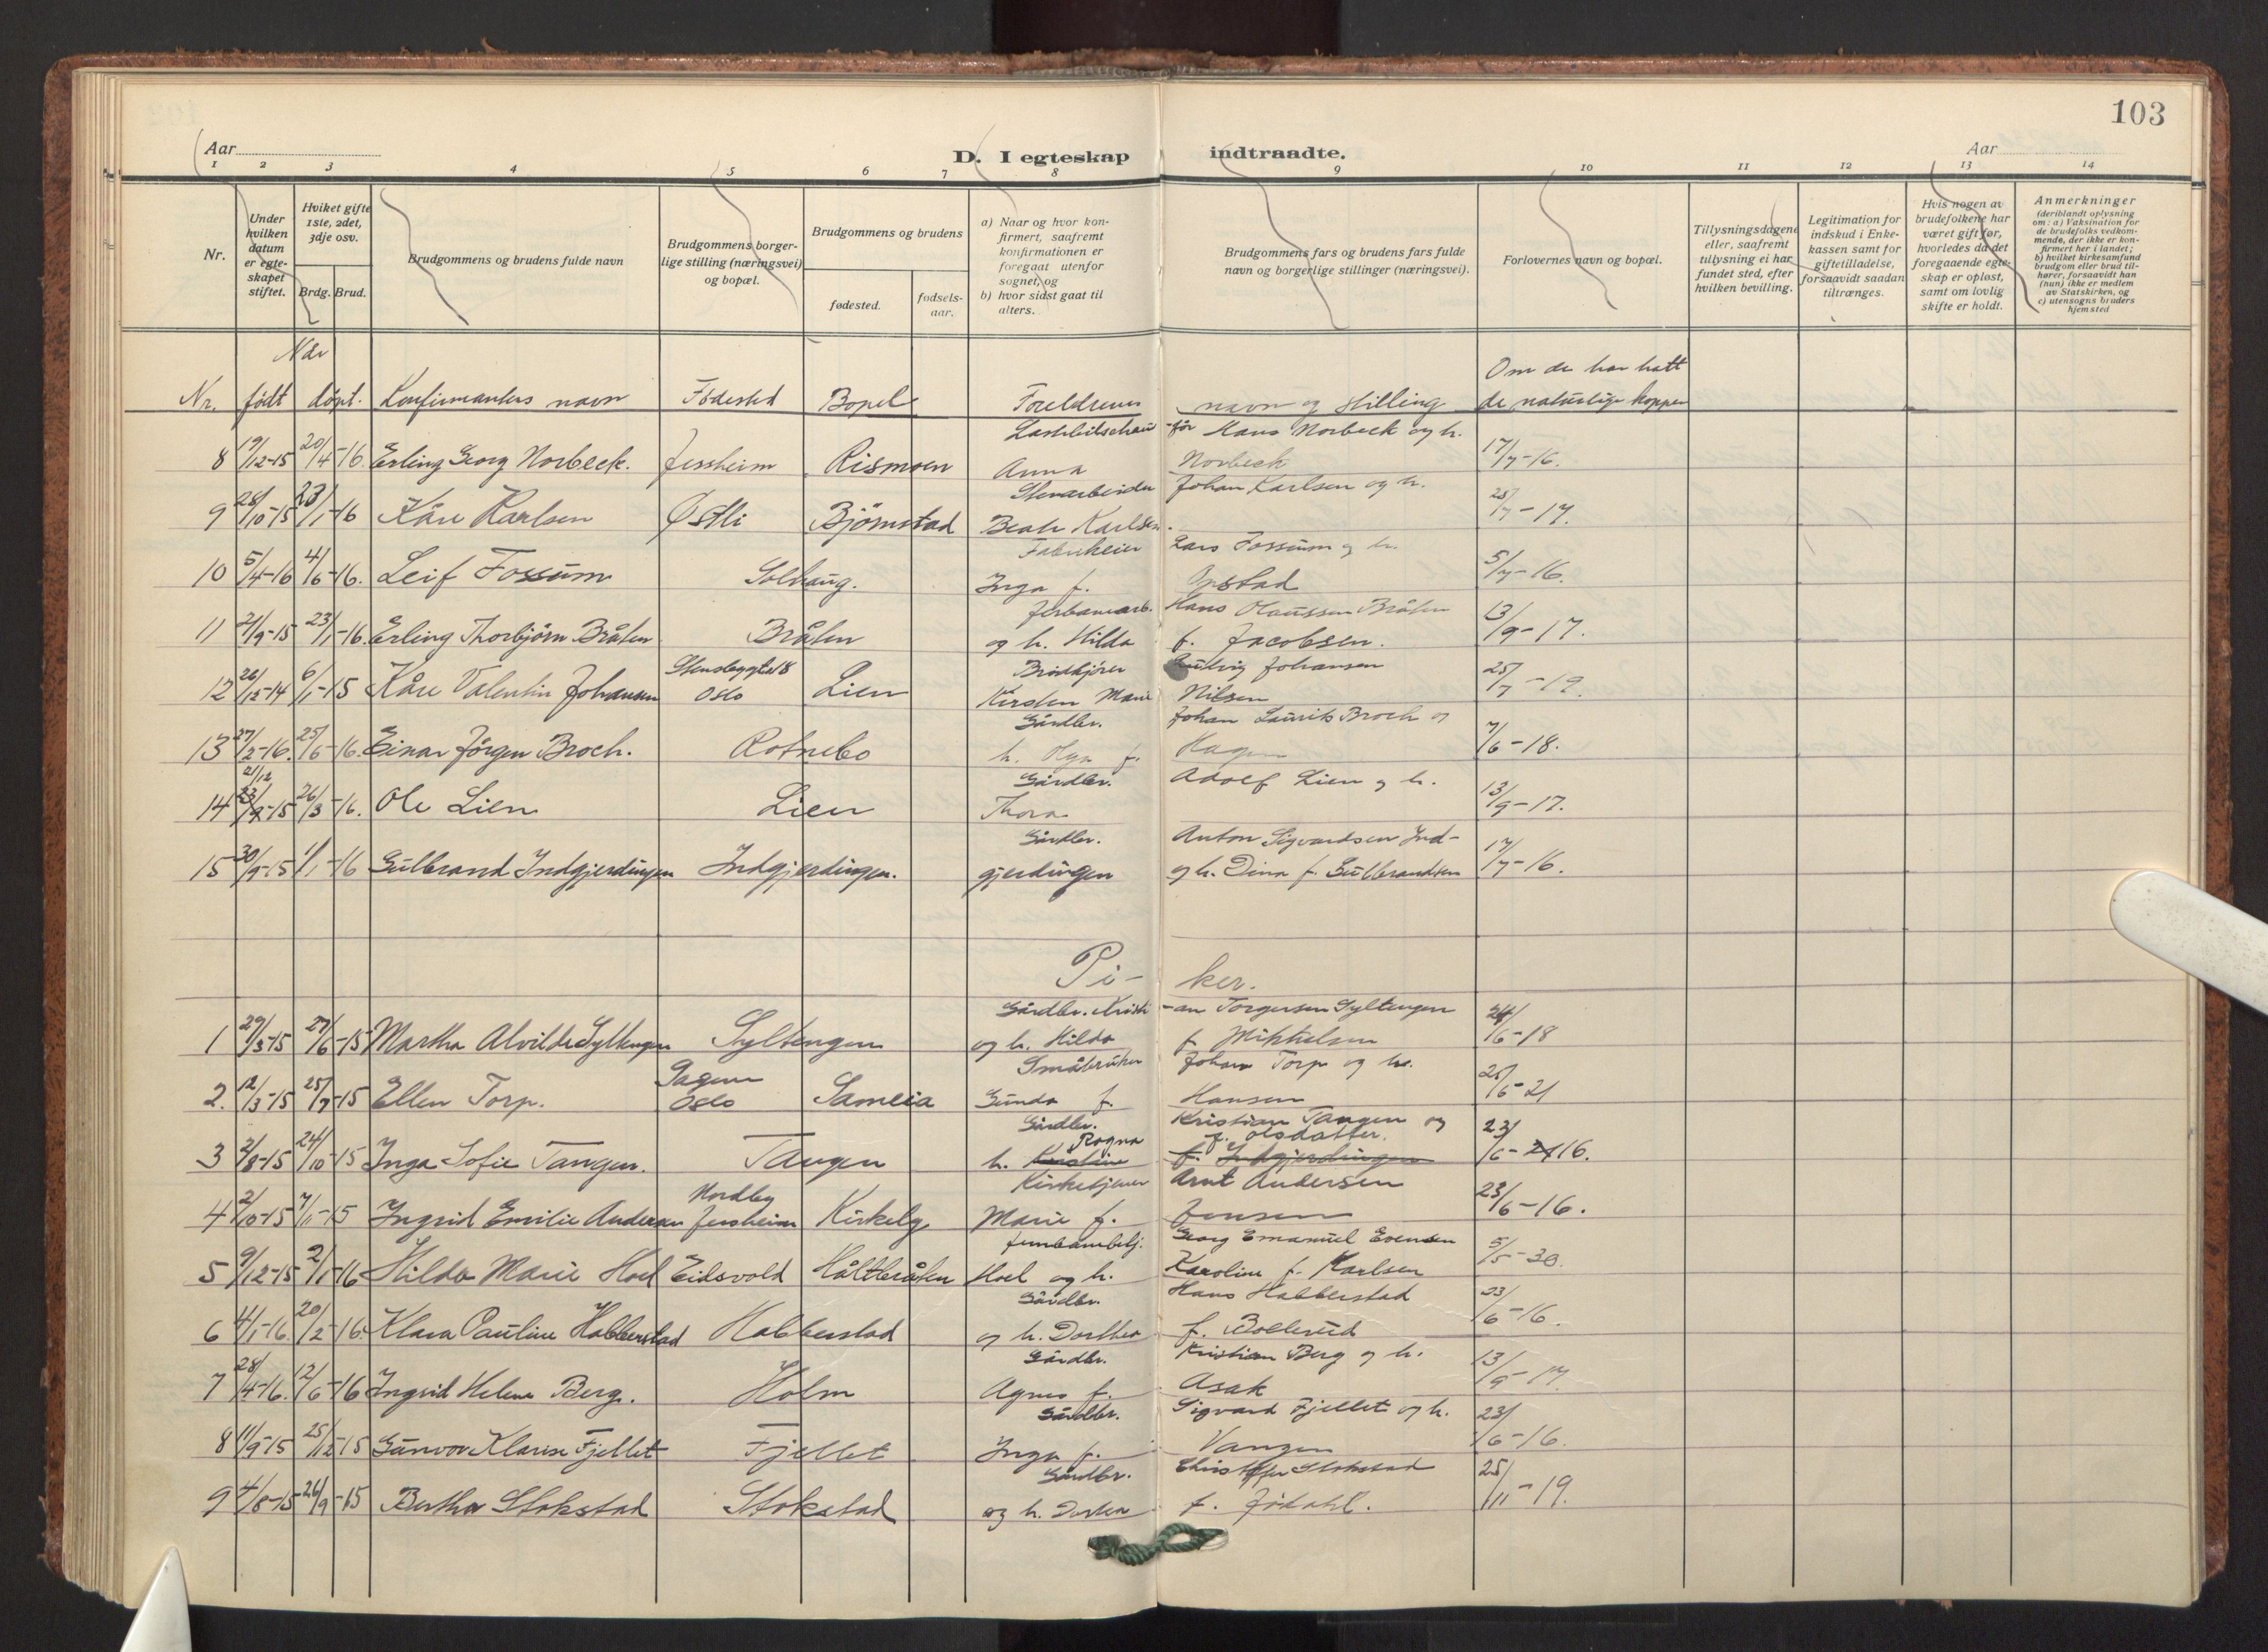 103
Aar
D. I egteskap indtraadte.
Aar
1 2 3 4 5 6 7 8 9 10 11 12 13 14
Nr.
Under hvilken datum er egte-skapet stiftet.
Hviket gifte 1ste, 2det, 3dje osv.
Brdg. Brud.
Brudgommens og brudens fulde navn
Brudgommens borger-lige stilling (næringsvei) og bopæl.
Brudgommens og brudens
fødested.
fødsels-aar.
a) Naar og hvor kon-firmert, saafremt konfirmationen er foregaat utenfor sognet, og
b) hvor sidst gaat til alters.
Brudgommens fars og brudens fars fulde navn og borgerlige stillinger (næringsvei).
Forlovernes navn og bopæl.
Tillysningsdagene eller, saafremt tillysning ei har fundet sted, efter hvilken bevilling.
Legitimation for indskud i Enke-kassen samt for giftetilladelse, forsaavidt saadan tiltrænges.
Hvis nogen av brudefolkene har været gift før, hvorledes da det foregaaende egte-skap er opløst, samt om lovlig skifte er holdt.
Anmerkninger (deriblandt oplysning om: a) Vaksination for de brudefolks vedkom-mende, der ikke er kon-firmert her i landet; b) hvilket kirkesamfund brudgom eller brud til-hører, forsaavidt han (hun) ikke er medlem av Statskirken, og c) utensogns bruders hjemsted
Når
Om de har hatt
Nr. født døpt. Konfirmantens navn Fødested Bopel Foreldrenes navn og stilling de naturlige kopper
Lastebilschau-før Hans Norbeck og h.
8 19/12-15 20/4-16. Erling Georg Norbeck. Jessheim Rismoen Anna Norbeck 17/7-16.
Stenarbeider Johan Karlsen og h.
9 28/10-15 23/1-16 Kåre Karlsen Østli Björnstad Beate Karlsen. 25/7-17.
Lars Fossum og h.
10 5/4-16 4/6-16. Leif Fossum Solhaug. Inga f. Opstad 5/7-16.
Jerbanearb. Hans Olaussen Bråten
11 21/9-15 23/1-16. Erling Thorbjörn Bråten Bråten og h. Hilda f. Jacobsen. 13/9-17.
Brödkjörer Ludvig Johansen
12 26/12-14 6/1-15 Kåre Valentin Johansen Oslo Lien Kirsten Marie Nilsen 25/7-19.
Gårdbr. Johan Laurits Broch og
13 27/2-16. 25/6-16. Einar Jörgen Broch. Rotnebo h. Olga f. Hagen 7/6-18.
21/12
Gårdbr. Adolf Lien og h.
14 23/9-15 26/3-16. Ole Lien Lien Thora 13/9-17.
Gårdbr. Anton Sigvardsen Ind-
15 30/9-15 1/1-16 Gulbrand Indgjerdingen Indgjerdingen. gjerdingen og h. Dina f. Gulbrandsen 17/7-16.
Pi-ker.
Gårdbr. Kristi-an Torgersen Syltengen
1 29/3-15 27/6-15 Martha Alvilde Syltengen Syltengen og h. Hilda f. Mikkelsen 24/6-18
Småbruker Johan Torp og h.
2. 12/3-15 25/7-15 Ellen Torp. Oslo Sameia Gunda f. Hansen 25/5-21
Gårdbr. Kristian Tangen og
Ragna f. Olsdatter.
3 2/8-15 24/10-15 Inga Sofie Tangen. Tangen h. Kristine f. Indgjerdingen 23/6-16.
Nordby Kirketjener Arnt Andersen
4 2/10-15 7/1-15 Ingrid Emilie Andersen Jessheim Kirkeby Marie f. Jensen 23/6-16.
Georg Emanuel Evensen
5 9/12-15 2/1-16 Hilda Marie Hoel Eidsvold Håltbråten Hoel og h. Karoline f. Karlsen 5/5-30.
Gårdbr. Hans Habberstad
6 4/1-16. 20/2-16. Klara Pauline Habberstad Habberstad og h. Dorthea f. Bollerud 23/6-16.
Gårdbr. Kristian Berg og h.
7 28/4-16. 12/6-16 Ingrid Helene Berg. Holm Agnes f. Asak 13/9-17.
Gårdbr. Sigvard Fjellet og h.
8 11/9-15 25/12-15 Gunvor Klarise Fjellet Fjellet Inga f. Vangen 23/6-16.
Gårdbr. Christoffer Stokstad
9 4/8-15 26/9-15 Bertha Stokstad Stokstad og h. Dortea f. Jödahl. 25/11-19.